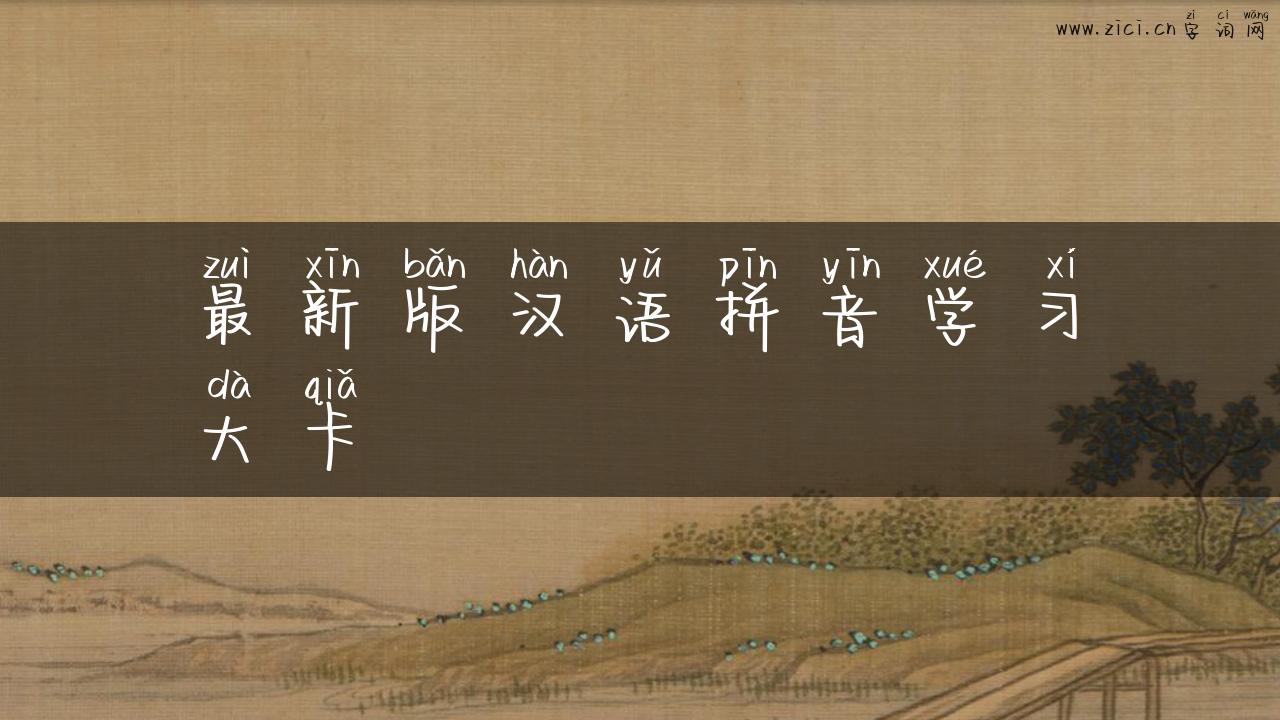 zì cí wǎng
www.zici.cn字词网
zuì xīn bǎn hàn yǔ pīn yīn xué xí
最新版汉语拼音学习
dà qiǎ
大卡